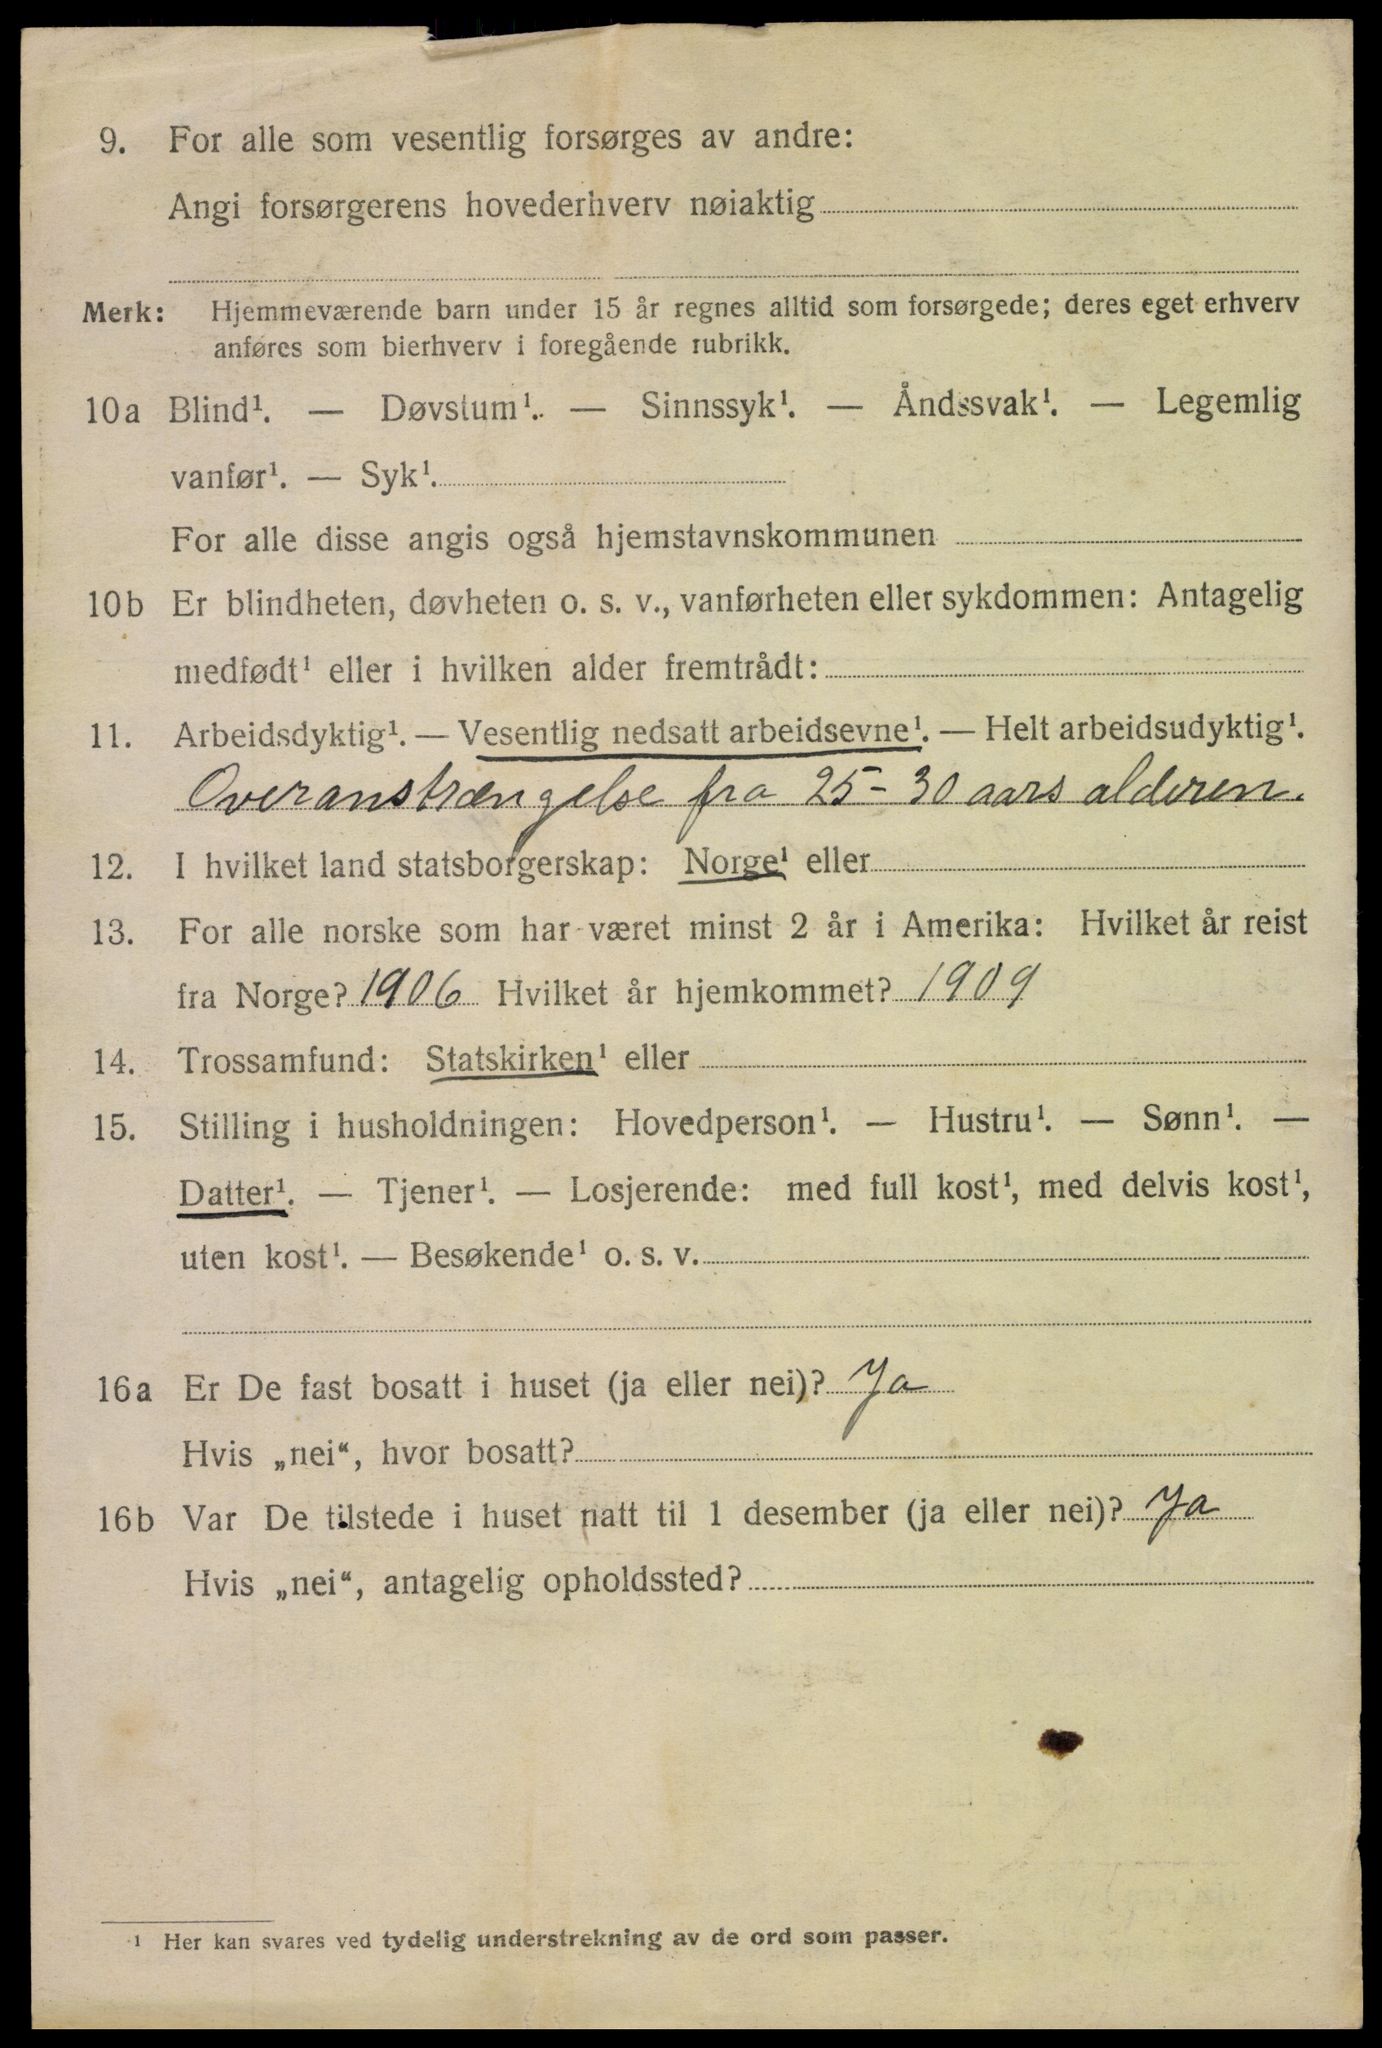 9. For alle som vesentlig forsørges av andre:
Angi forsørgerens hovederhverv nøiaktig
Merk: Hjemmeværende barn under 15 år regnes alltid som forsørgede; deres eget erhverv
anføres som bierhverv i foregående rubrikk.
10a Blind¹. — Døvstum¹. — Sinnssyk¹. — Åndssvak¹. — Legemlig
vanfør¹. — Syk¹.
For alle disse angis også hjemstavnskommunen
10b Er blindheten, døvheten o. s. v., vanførheten eller sykdommen: Antagelig
medfødt¹ eller i hvilken alder fremtrådt:
11. Arbeidsdyktig¹. — Vesentlig nedsatt arbeidsevne¹. — Helt arbeidsudyktig¹.
Overanstrængelse fra 25-30 aars alderen.
12. I hvilket land statsborgerskap: Norge¹ eller
13. For alle norske som har været minst 2 år i Amerika: Hvilket år reist
fra Norge? 1906 Hvilket år hjemkommet? 1909
14. Trossamfund: Statskirken¹ eller
15. Stilling i husholdningen: Hovedperson¹. — Hustru¹. — Sønn¹. —
Datter¹. — Tjener¹. — Losjerende: med full kost¹, med delvis kost¹,
uten kost¹. — Besøkende¹ o. s. v.
16a Er De fast bosatt i huset (ja eller nei)? Ja
Hvis „nei“, hvor bosatt?
16b Var De tilstede i huset natt til 1 desember (ja eller nei)? Ja
Hvis „nei“, antagelig opholdssted?
¹ Her kan svares ved tydelig understrekning av de ord som passer.